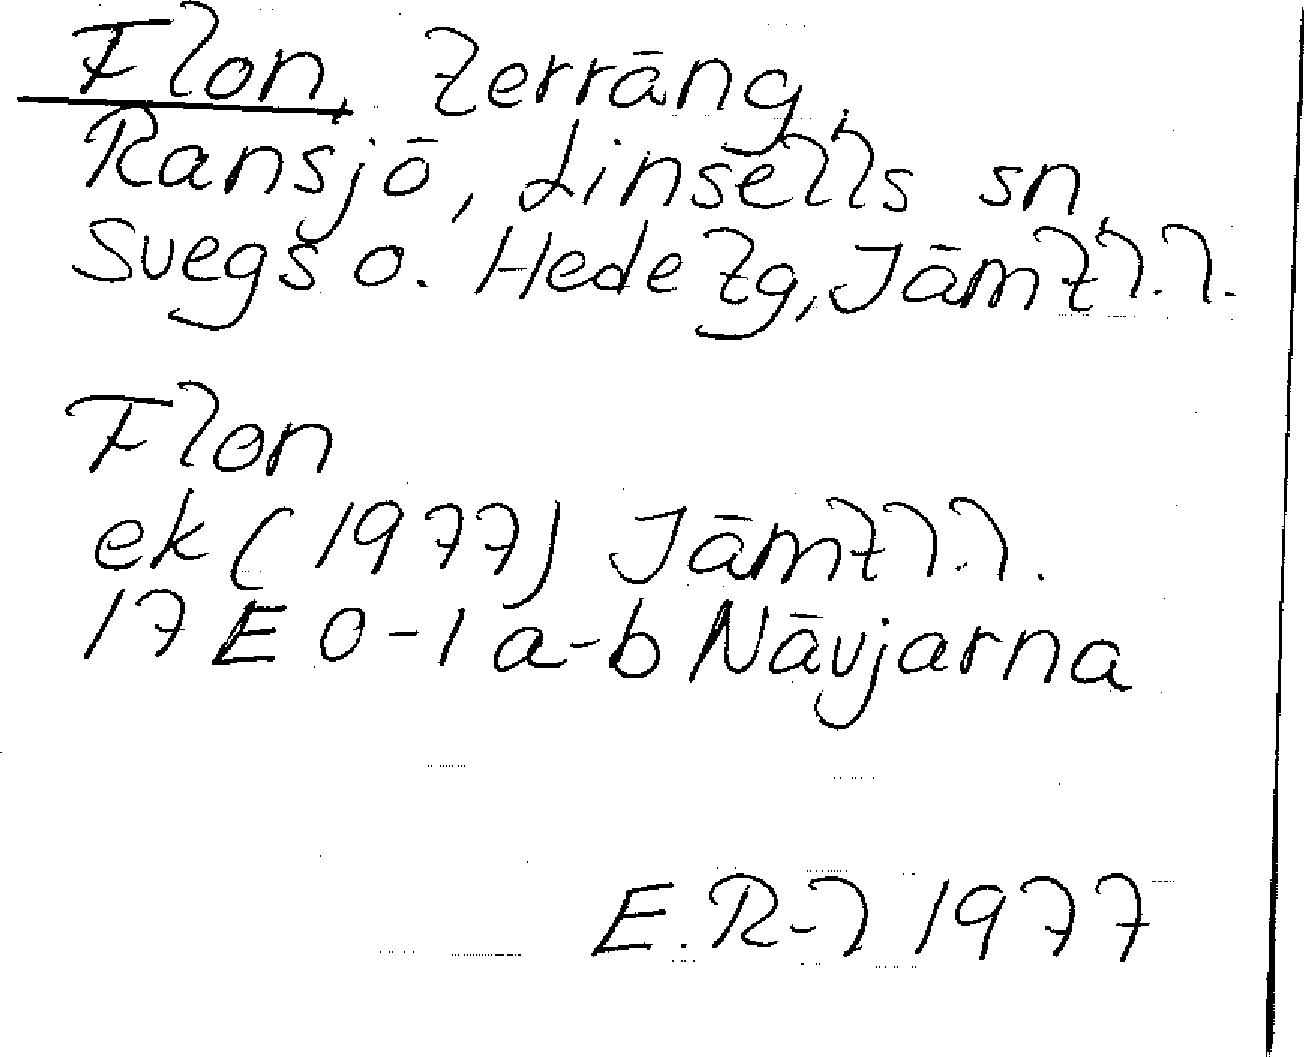 Flon, terräng,
Ransjö, Linsells sn,
Svegs o. Hede tg, Jämtl.l.
Flon
ek (1977) Jämtl.l.
17 E 0-1 a-b Nävjarna
E.R-l 1977